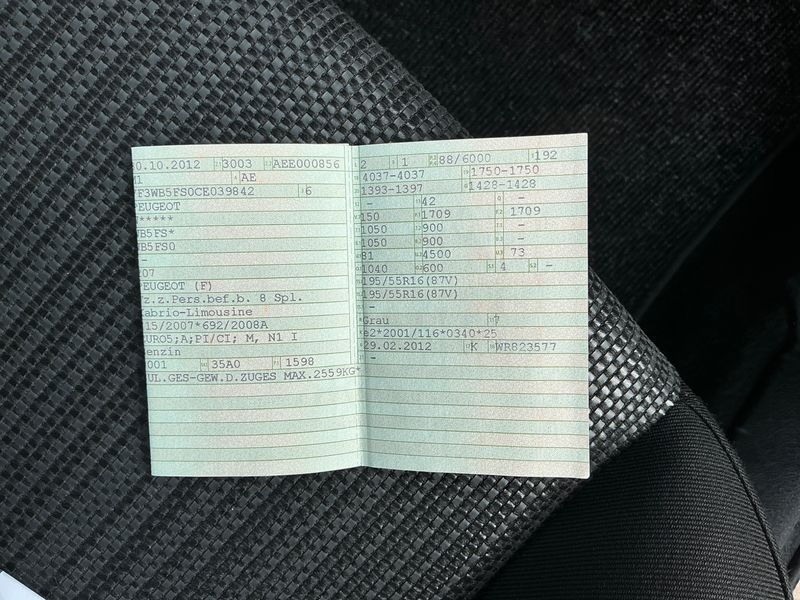 0.10.2012 3003 AEE000856
AE
F3WB5FS0CE039842 6
EUGEOT
*****
B5FS*
B5FS0
-
207
EUGEOT (F)
z.z.Pers.bef.b. 8 Spl.
abrio-Limousine
15/2007*692/2008A
URO5;A;PI/CI; M, N1 I
enzin
001 35A0 1598
UL.GES-GEW.D.ZUGES MAX.2559KG*
2 1 88/6000 192
4037-4037 1750-1750
1393-1397 1428-1428
- 42 -
150 1709 1709
1050 900 -
1050 900 -
81 4500 73
1040 600 4 -
195/55R16(87V)
195/55R16(87V)
-
Grau 7
e2*2001/116*0340*25
29.02.2012 K WR823577
-